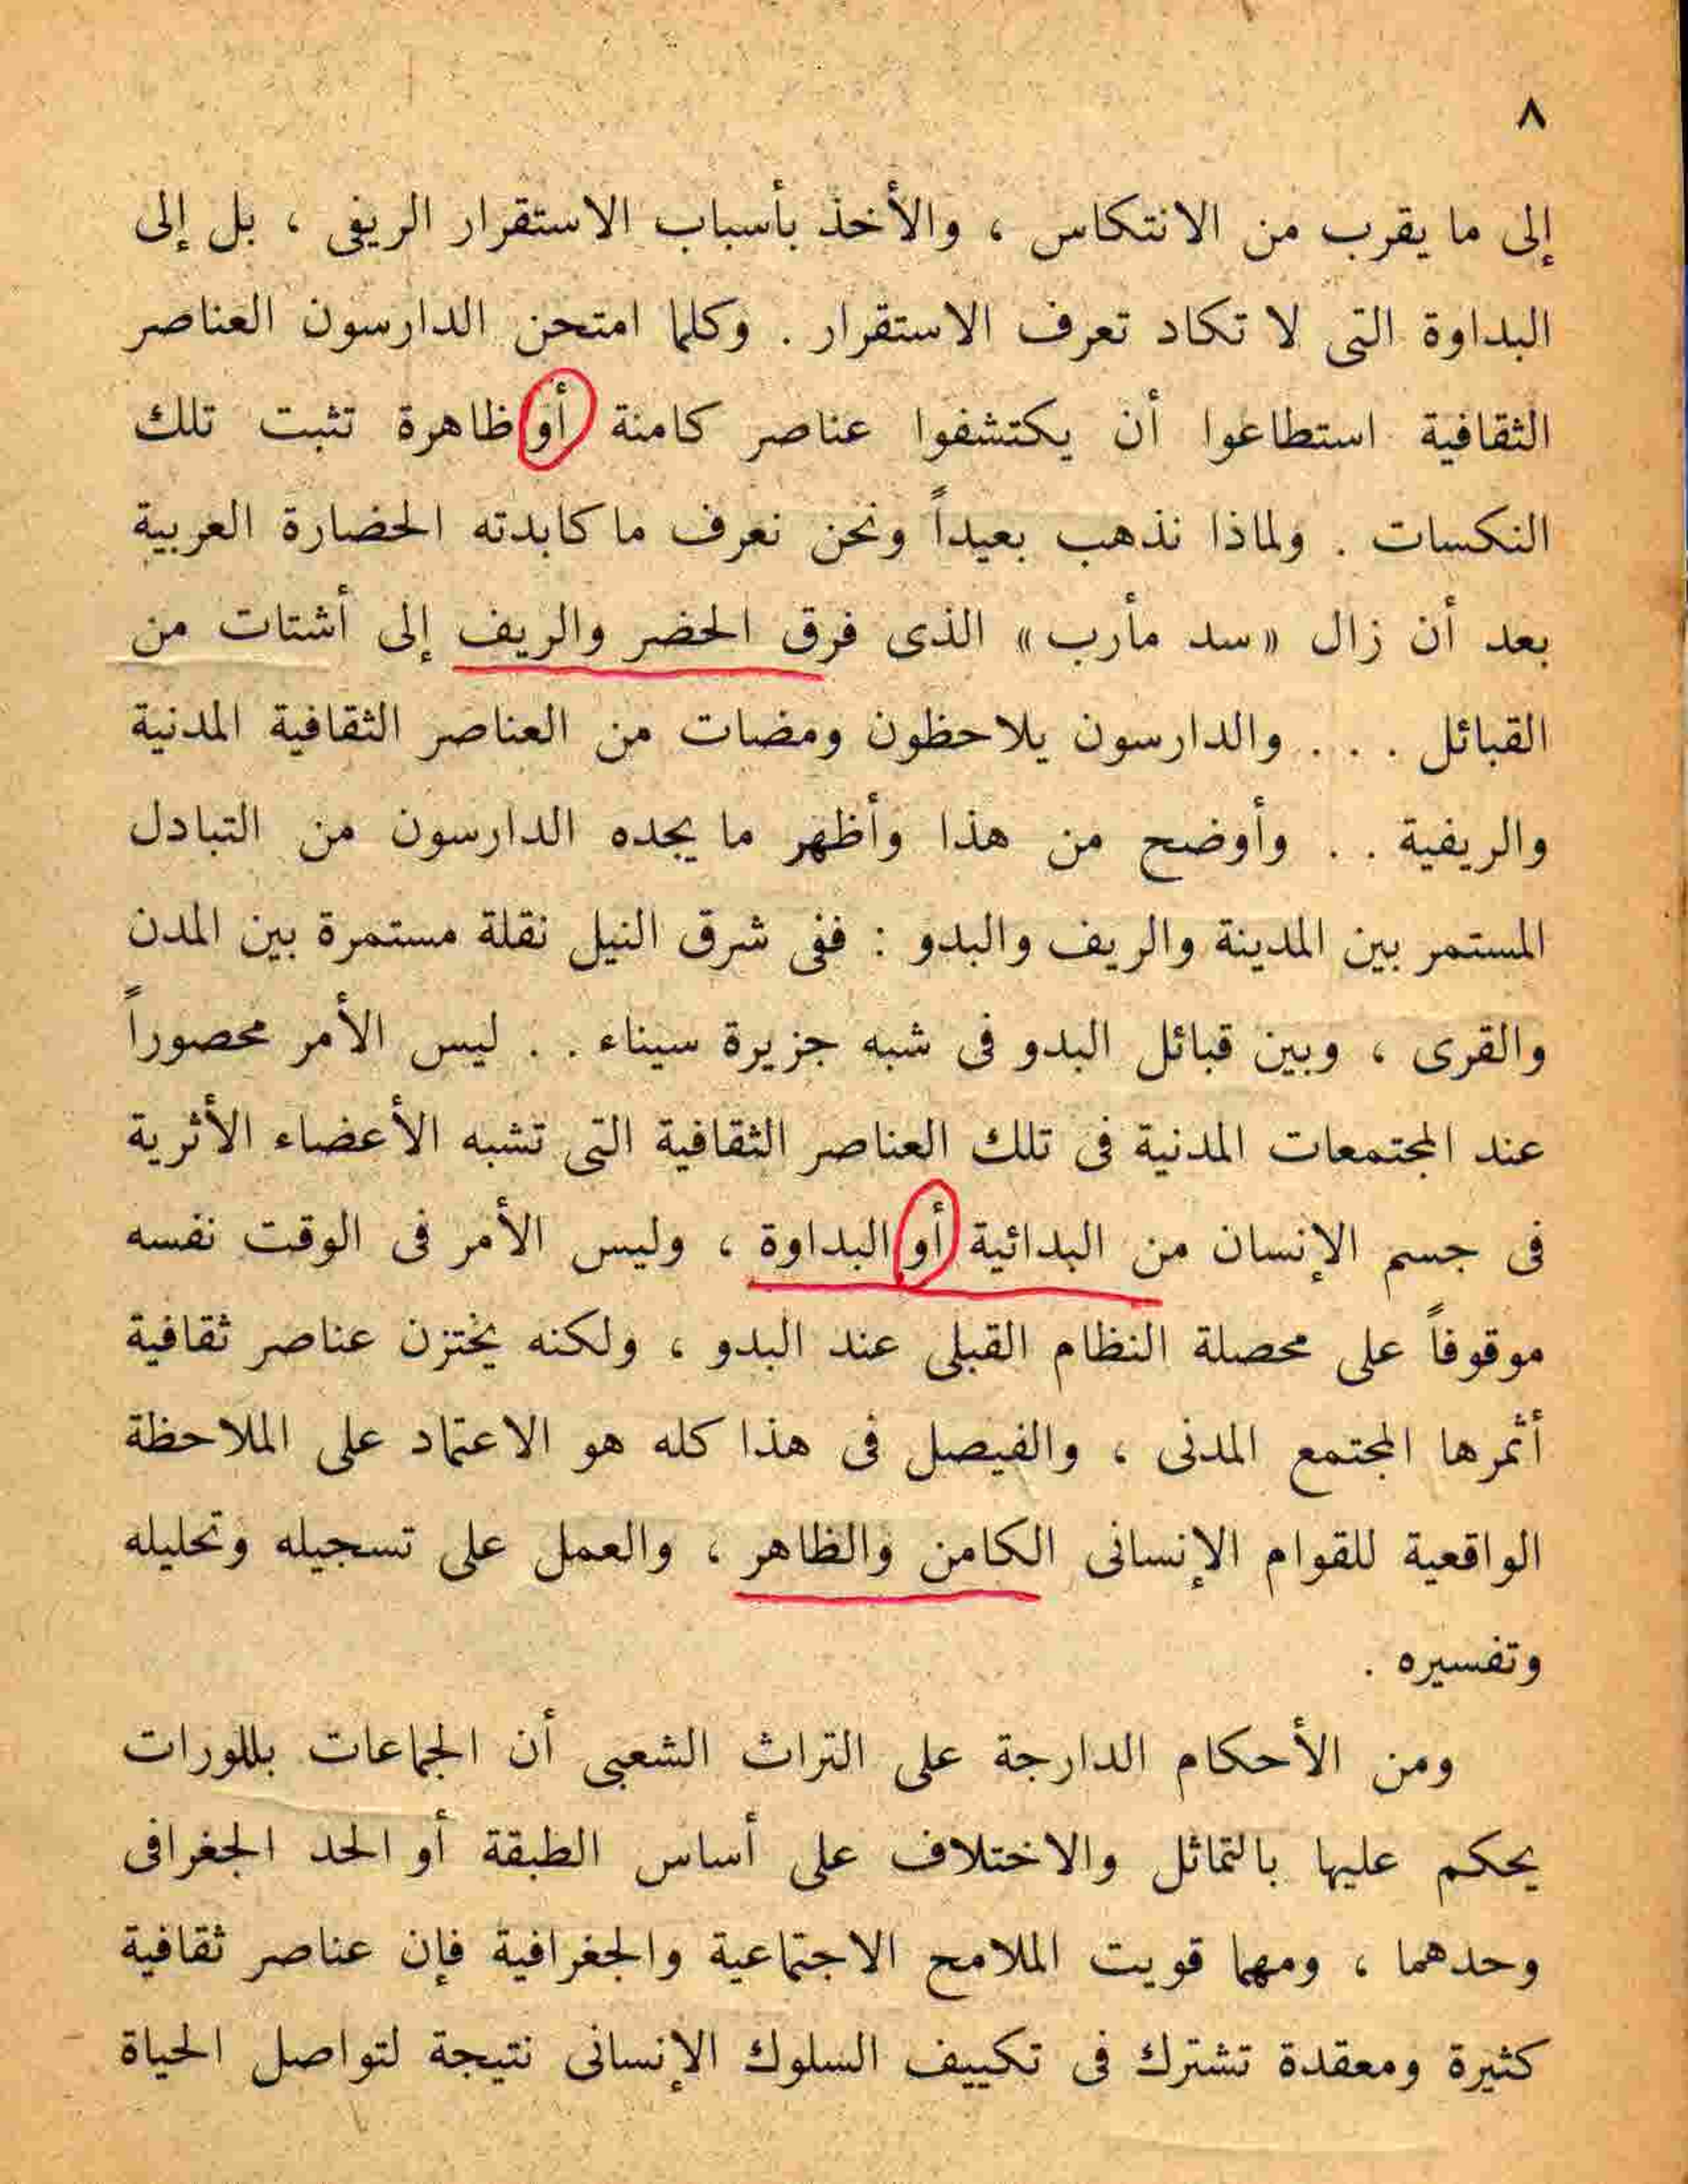 ٨
إلى ما يقرب من الانتكاس ، والأخذ بأسباب الاستقرار الريفى ، بل إلى
البداوة التى لا تكاد تعرف الاستقرار . وكلما امتحن الدارسون العناصر
الثقافية استطاعوا أن يكتشفوا عناصر كامنة أو ظاهرة تثبت تلك
النكسات . ولماذا نذهب بعيداً ونحن نعرف ما كابدته الحضارة العربية
بعد أن زال «سد مأرب» الذى فرق الحضر والريف إلى أشتات من
القبائل . . . والدارسون يلاحظون ومضات من العناصر الثقافية المدنية
والريفية . . وأوضح من هذا وأظهر ما يجده الدارسون من التبادل
المستمر بين المدينة والريف والبدو : ففى شرق النيل نقلة مستمرة بين المدن
والقرى ، وبين قبائل البدو فى شبه جزيرة سيناء . . ليس الأمر محصوراً
عند المجتمعات المدنية فى تلك العناصر الثقافية التى تشبه الأعضاء الأثرية
فى جسم الإنسان من البدائية أو البداوة ، وليس الأمر فى الوقت نفسه
موقوفاً على محصلة النظام القبلى عند البدو ، ولكنه يختزن عناصر ثقافية
أثمرها المجتمع المدنى ، والفيصل فى هذا كله هو الاعتماد على الملاحظة
الواقعية للقوام الإنسانى الكامن والظاهر ، والعمل على تسجيله وتحليله
وتفسيره .
ومن الأحكام الدارجة على التراث الشعبى أن الجماعات بللورات
يحكم عليها بالتماثل والاختلاف على أساس الطبقة أو الحد الجغرافى
وحدهما ، ومهما قويت الملامح الاجتماعية والجغرافية فإن عناصر ثقافية
كثيرة ومعقدة تشترك فى تكييف السلوك الإنسانى نتيجة لتواصل الحياة